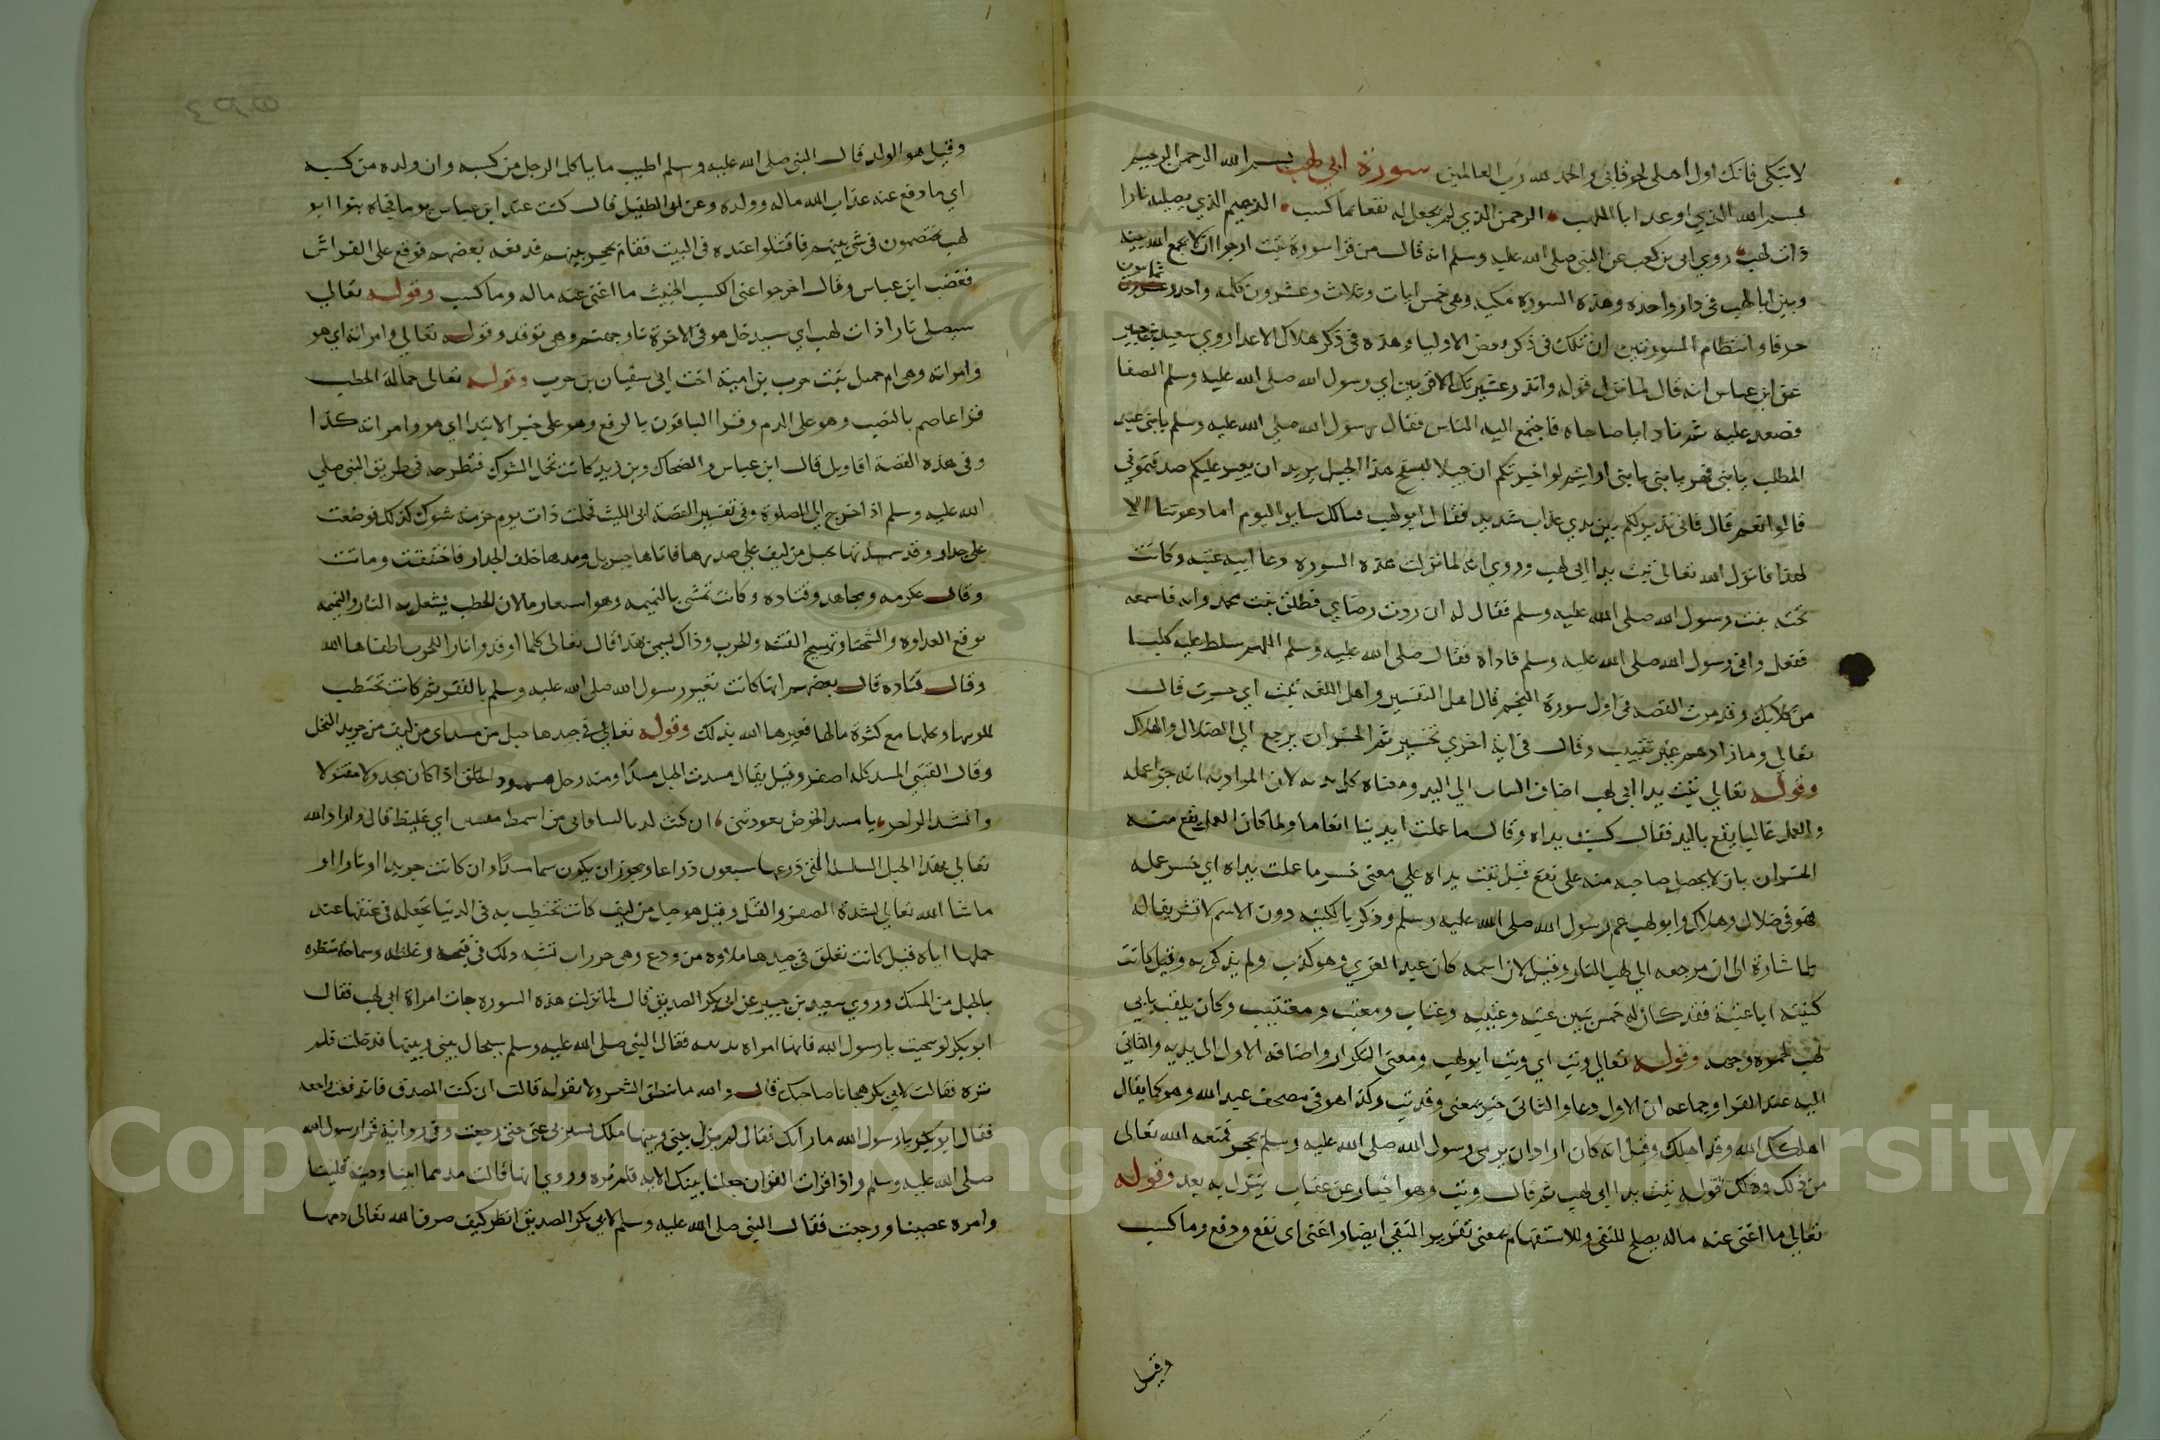 لا تبكي فانك اول اهلي لحوقا بي والحمد لله رب العالمين سورة ابي لهب بسم الله الرحمن الرحيم
بسم الله الذي اوعد ابا لهب الرحمن الذي لم يجعل له نفعا بما كسب الرحيم الذي يصليه نارا
ذات لهب روي ابي بن كعب عن النبي صلى الله عليه وسلم انه قال من قرا سورة تبت ارجوا ان لا يجمع الله بينه
وبين ابا لهب في دار واحده وهذه السورة مكيه وهي خمس ايات وثلاث وعشرون كلمه واحد وثمانون
حرفا وانتظام السورتين ان تلك في ذكر بعض الاوليا وهذه في ذكر هلاك الاعدا روي سعيد بن جبير
عن ابن عباس انه قال لما نزل قوله وانذر عشيرتك الاقربين اي رسول الله صلى الله عليه وسلم الصفا
فصعد عليه ثم نادا يا صاحباه فاجتمع اليه الناس فقال رسول الله صلى الله عليه وسلم يا بني عبد
المطلب يا بني فهر يا بني يا بني ارايتم لو اخبرتكم ان خيلا بسفح هذا الجبل يريد ان يغير عليكم صدقتموني
قالوا نعم قال فاني نذير لكم بين يدي عذاب شديد فقال ابو لهب تبا لك ساير اليوم اما دعوتنا الا
لهذا فانزل الله تعالى تبت يدا ابي لهب وروي انه لما نزلت هذه السورة دعا ابنه عتبه وكانت
تحته بنت رسول الله صلى الله عليه وسلم فقال له ان ردت رضاي فطلق بنت محمد وانه فاسمعه
ففعل واتى رسول الله صلى الله عليه وسلم فاذاه فقال صلى الله عليه وسلم اللهم سلط عليه كلبا
من كلابك وقد مرت القصه في اول سورة النجم قال اهل التفسير واهل اللغه تبت اي خسرت قال
تعالى وما زادهم غير تتبيب وقال في اية اخرى تخسير ثم الخسران يرجع الى الضلال والهلاك
وقوله تعالى تبت يدا ابي لهب اضاف التباب الى اليد ومعناه كل بدنه لان المراد به انه جزا عمله
والعمل غالبا يقع باليد فقال كسبت يداه وقال مما عملت ايدينا انعاما ولما كان العمل يقع منه
الخسران بان لا يحصل صاحبه منه على نفع قيل تبت يداه على معنى خسر ما عملت يداه اي خسر عمله
فهو في ضلال وهلاك وابو لهب عم رسول الله صلى الله عليه وسلم وذكر بالكنيه دون الاسم لا تشريفا له
بل اشارة الى ان مرجعه الى لهب النار وقيل لان اسمه كان عبد العزي وهو كذب ولم يذكر به وقيل كانت
كنيته ابا عتبة فقد كان له خمس بنين عتبه وعتيبه وعتاب ومعتب ومعتيب وكان يلقب بابي
لهب لحمرة وجهه وقوله تعالى وتب اي وتب ابو لهب ومعنى التكرار واضافة الاول الى يديه والثاني
اليه عند الفرا وجماعه ان الاول دعا والثاني خبر بمعنى وقد تب وكذا هو في مصحف عبد الله وهو كما يقال
اهلكك الله وقد اهلك وقيل انه كان اراد ان يرمى رسول الله صلى الله عليه وسلم بحجر فمنعه الله تعالى
من ذلك وهلك قوله تبت يدا ابي لهب ثم قال وتب وهو اخبار عن عقاب ينزل به بعد وقوله
تعالى ما اغنى عنه ماله يصلح للنفي وللاستفهام بمعنى تقرير النفي ايضا واغنى اى نفع ودفع وما كسب
وقيل
وقيل هو الولد قال النبي صلى الله عليه وسلم اطيب ما ياكل الرجل من كسبه وان ولده من كسبه
اي ما دفع عنه عذاب الله ماله وولده وعن ابو الطفيل قال كنت عند ابن عباس يوما فجاه بنوا ابو
لهب يختصمون في شي بينهم فاقتتلوا عنده في البيت فقام يحجز بينهم فدفعه بعضهم فوقع على الفراش
فغضب ابن عباس وقال اخرجوا عني الكسب الخبيث ما اغنى عنه ماله وما كسب وقوله تعالى
سيصلى نارا ذات لهب اي سيدخل هو في الاخرة نار جهنم وهي توقد وقوله تعالى وامراته اي هو
وامراته وهي ام جميل بنت حرب بن امية اخت ابي سفيان بن حرب وقوله تعالى حمالة الحطب
قرا عاصم بالنصب وهو على الذم وقرا الباقون بالرفع وهو على خبر الابتدا اي هو وامراته كذا
وفي هذه القصة اقاويل قال ابن عباس والضحاك وبن زيد كانت تحمل الشوك فتطرحه في طريق النبي صلى
الله عليه وسلم اذا خرج الى الصلوة وفي تفسير القصة ابي الليث فحملت ذات يوم حزمة شوك كذلك فوضعت
على جدار وقد شدتها بحبل من ليف على صدرها فاتاها جبريل ومدها خلف الجدار فاختنقت وماتت
وقال عكرمه ومجاهد وقتاده وكانت تمشي بالنميمه وهو استعاره لان الحطب يشعل به النار والنميمه
توقع العداوه والشحنا وتهييج الفتنه والحرب وذاك يسمى نقد قال تعالى كلما اوقدوا نارا للحرب اطفاها الله
وقال قتاده قال بعضهم انها كانت تعير رسول الله صلى الله عليه وسلم بالفقر ثم كانت تحتطب
للومها وبخلها مع كثرة مالها فعيرها الله بذلك وقوله تعالى في جيدها حبل من مسد اي من ليف من جريد النخل
وقال القتبي المسد كله اصفر وقيل يقال مسدت الحبل مسدا ومنه رجل ممسود الخلق اذا كان مجدولا مفتولا
وانشد الراجز يا مسد الخوص تعوذ مني ان كنت لدنا لينا فاني من اشمط اي غليظ قال واراد الله
تعالى بهذا الحبل السلسلة التي ذرعها سبعون ذراعا ويجوز ان يكون سما مسدا وان كانت حديدا او نارا او
ما شا الله تعالى لشدة الصفر والفتل وقيل هو حبل من ليف كانت تحتطب به في الدنيا تجعله في عنقها عند
حملها اياه قيل كانت تعلق في جيدها قلاده من ودع وهي خرزات تشبه ذلك في قبحه وغلظه وسماجة منظره
بالحبل من المسك وروي سعيد بن جبير عن ابي بكر الصديق قال لما نزلت هذه السوره جات امراة ابي لهب فقال
ابو بكر لو تنحيت يا رسول الله فانها امراه بذيه فقال النبي صلى الله عليه وسلم سيحال بيني وبينها فدخلت فلم
تره فقالت لابي بكر هجانا صاحبك قال والله ما ينطق الشعر ولا يقوله قالت ان كنت لمصدق فاندفعت راجعه
فقال ابو بكر يا رسول الله ما راتك فقال لم يزل بيني وبينها ملك يسترني عنها حتى رجعت وفي رواية قرا رسول الله
صلى الله عليه وسلم واذا قرات القران جعلنا بينك الايه فلم تره وروي انها قالت مذمما ابينا ودينه قلينا
وامره عصينا ورجعت فقال النبي صلى الله عليه وسلم لابي بكر الصديق انظر كيف صرف الله تعالى ذمها
Copyright © King Saud University